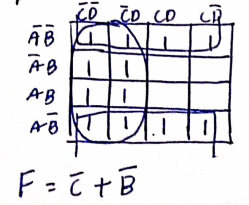 C̅D̅ C̅D CD CD̅
A̅B̅ 1 1 1 1
A̅B 1 1
AB 1 1
AB̅ 1 1 1 1
F = C̅ + B̅